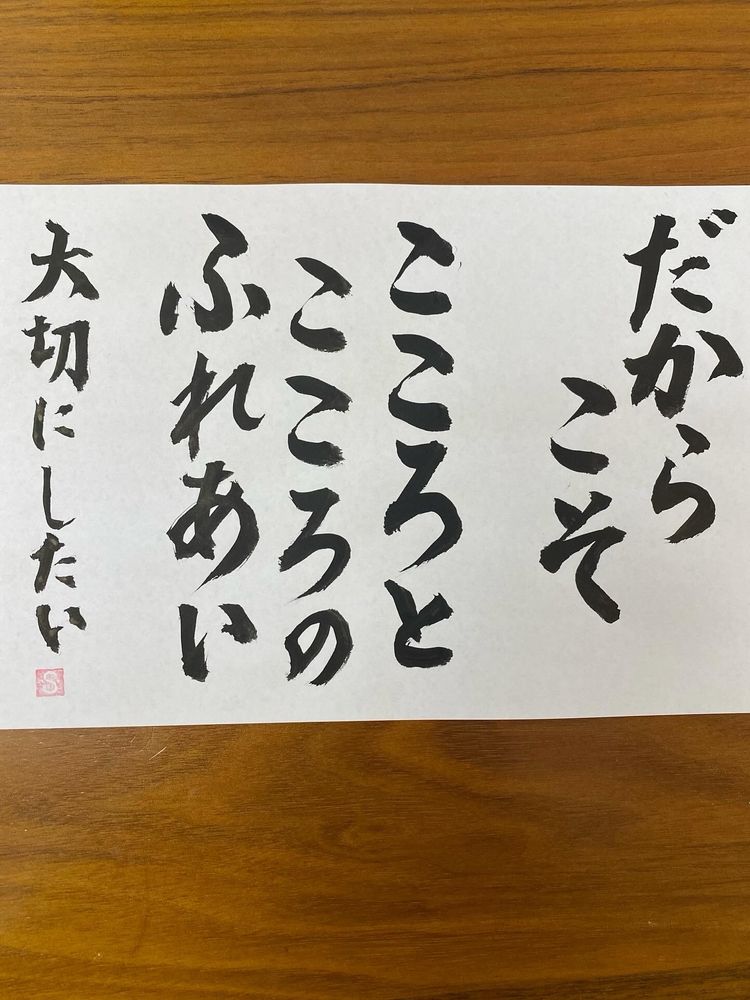 だから
こそ
こころと
こころの
ふれあい
大切にしたい
S